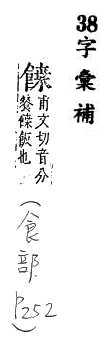 38字彙補
甫文切音分
飯也
(食部 P252)